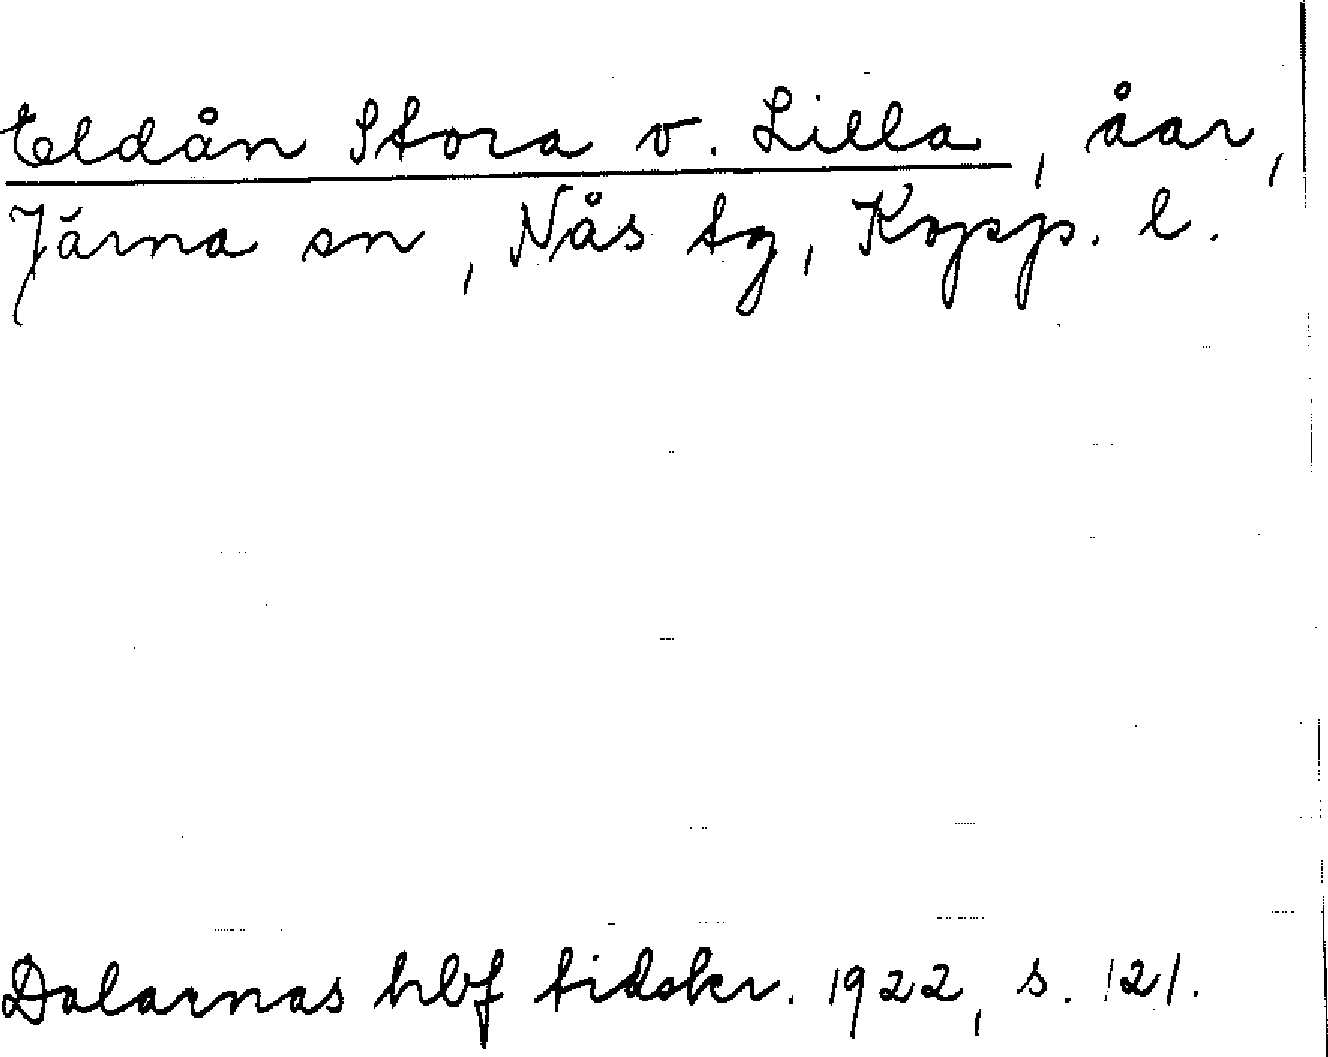 Eldån Stora o. Lilla, åar,
Järna sn, Nås tg, Kopp. l.
Dalarnas hbf tidskr. 1922, s. 121.